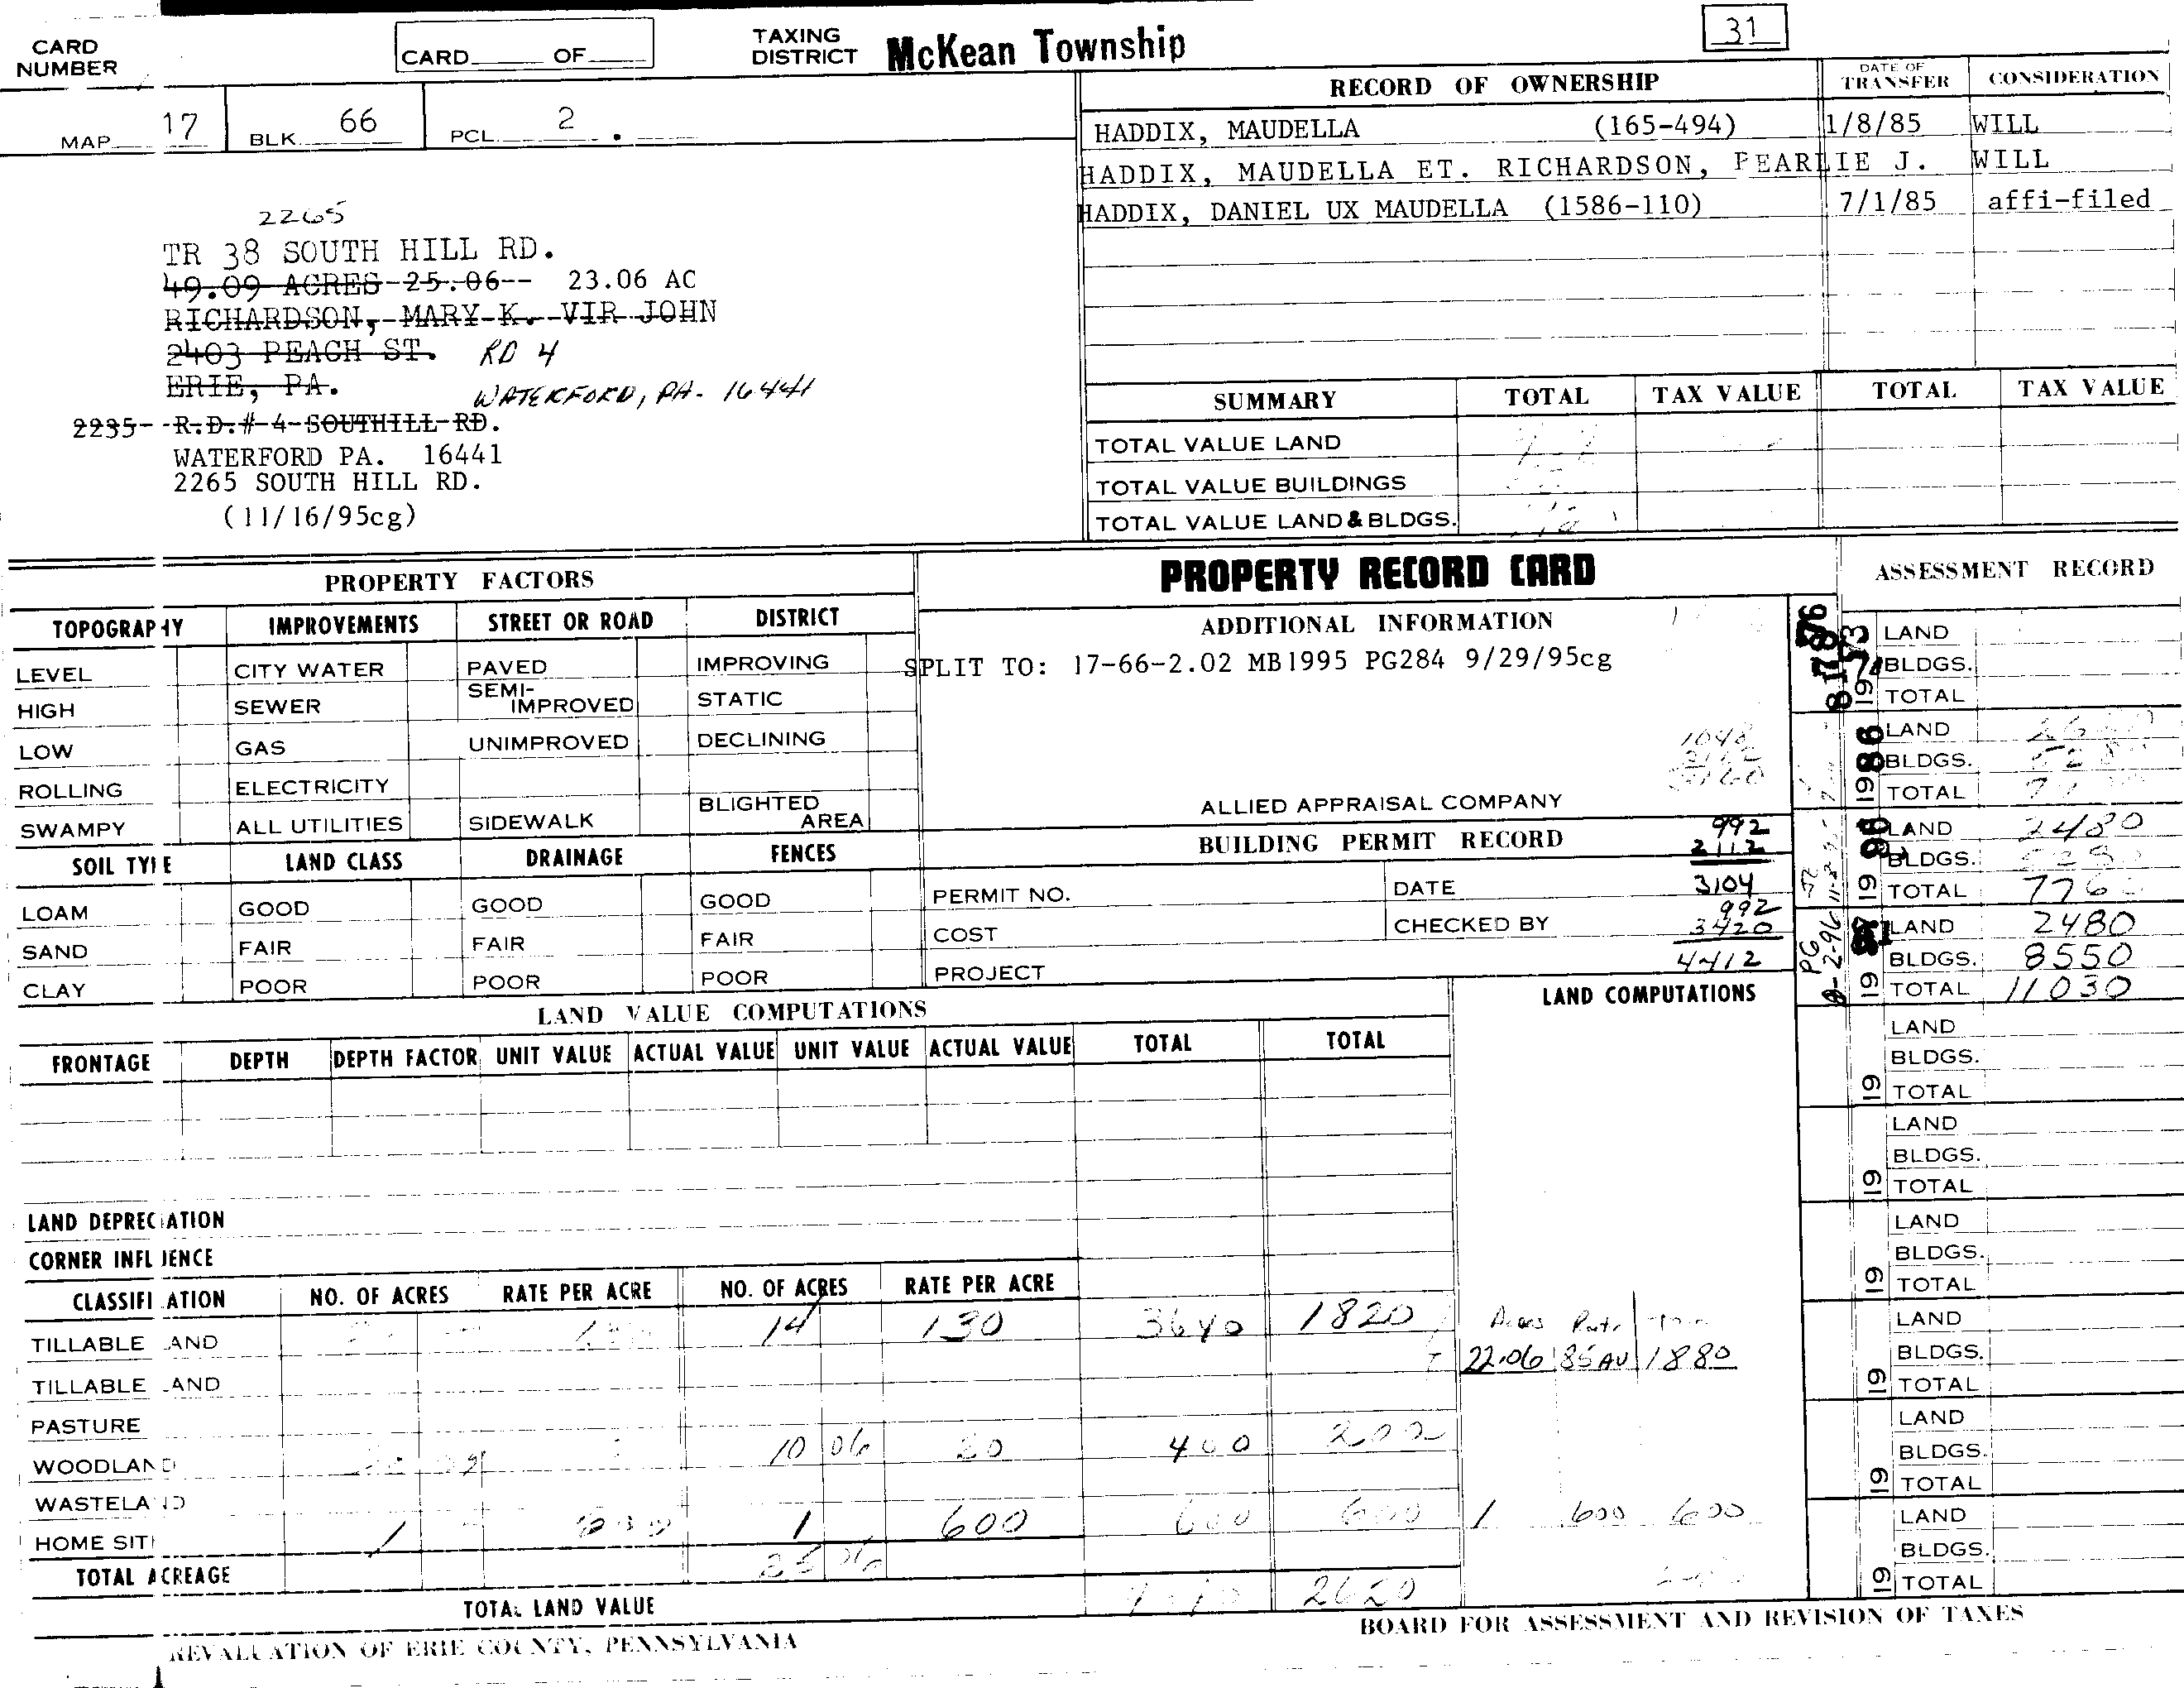 CARD NUMBER
CARD OF
TAXING DISTRICT McKean Township
31
MAP 17 BLK 66 PCL 2 .
RECORD OF OWNERSHIP DATE OF TRANSFER CONSIDERATION
HADDIX, MAUDELLA (165-494) 1/8/85 WILL
HADDIX, MAUDELLA ET. RICHARDSON, PEARLIE J. WILL
HADDIX, DANIEL UX MAUDELLA (1586-110) 7/1/85 affi-filed
2265
TR 38 SOUTH HILL RD.
49.09 ACRES 25.06-- 23.06 AC
RICHARDSON, MARY K. VIR JOHN
2403 PEACH ST. RD 4
ERIE, PA. WATERFORD, PA. 16441
2235- R.D.#-4-SOUTHILL RD.
WATERFORD PA. 16441
2265 SOUTH HILL RD.
(11/16/95cg)
SUMMARY TOTAL TAX VALUE TOTAL TAX VALUE
TOTAL VALUE LAND
TOTAL VALUE BUILDINGS
TOTAL VALUE LAND & BLDGS.
PROPERTY FACTORS
TOPOGRAPHY IMPROVEMENTS STREET OR ROAD DISTRICT
LEVEL CITY WATER PAVED IMPROVING
HIGH SEWER SEMI-IMPROVED STATIC
LOW GAS UNIMPROVED DECLINING
ROLLING ELECTRICITY
SWAMPY ALL UTILITIES SIDEWALK BLIGHTED AREA
SOIL TYPE LAND CLASS DRAINAGE FENCES
LOAM GOOD GOOD GOOD
SAND FAIR FAIR FAIR
CLAY POOR POOR POOR
PROPERTY RECORD CARD
ADDITIONAL INFORMATION
SPLIT TO: 17-66-2.02 MB1995 PG284 9/29/95cg
1048
ALLIED APPRAISAL COMPANY
BUILDING PERMIT RECORD
992
2112
3104
992
3420
4412
PERMIT NO. DATE
COST CHECKED BY
PROJECT
ASSESSMENT RECORD
LAND
BLDGS.
19 TOTAL
LAND
BLDGS.
1986 TOTAL
LAND 2480
BLDGS.
19 TOTAL 776
LAND 2480
BLDGS. 8550
19 TOTAL 11030
LAND
BLDGS.
19 TOTAL
LAND
BLDGS.
19 TOTAL
LAND
BLDGS.
19 TOTAL
LAND
BLDGS.
19 TOTAL
LAND
BLDGS.
19 TOTAL
LAND
BLDGS.
19 TOTAL
LAND VALUE COMPUTATIONS
LAND COMPUTATIONS
FRONTAGE DEPTH DEPTH FACTOR UNIT VALUE ACTUAL VALUE UNIT VALUE ACTUAL VALUE TOTAL TOTAL
LAND DEPRECIATION
CORNER INFLUENCE
CLASSIFICATION NO. OF ACRES RATE PER ACRE NO. OF ACRES RATE PER ACRE
TILLABLE LAND 14 130 3640 1820 Acres Rate
22.06 85 AV 1880
TILLABLE LAND
PASTURE
WOODLAND 10 06 20 400 200
WASTELAND
HOME SITE 1 1 600 600 600 1 600 600
TOTAL ACREAGE 25 06
TOTAL LAND VALUE 2620
REVALUATION OF ERIE COUNTY, PENNSYLVANIA
BOARD FOR ASSESSMENT AND REVISION OF TAXES